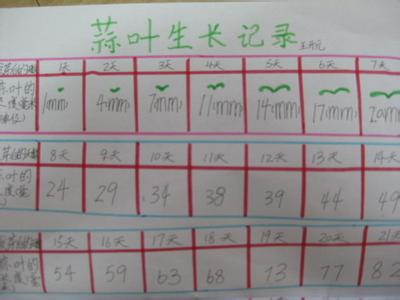 蒜叶生长记录
1天 2天 3天 4天 5天 6天 7天
蒜叶的 1mm 4mm 7mm 11mm 14mm 17mm 20mm
8天 9天 10天 11天 12天 13天 14天
蒜叶的 24 29 34 38 39 44 49
15天 16天 17天 18天 19天 20天 21天
蒜叶的 54 59 63 68 73 77 82